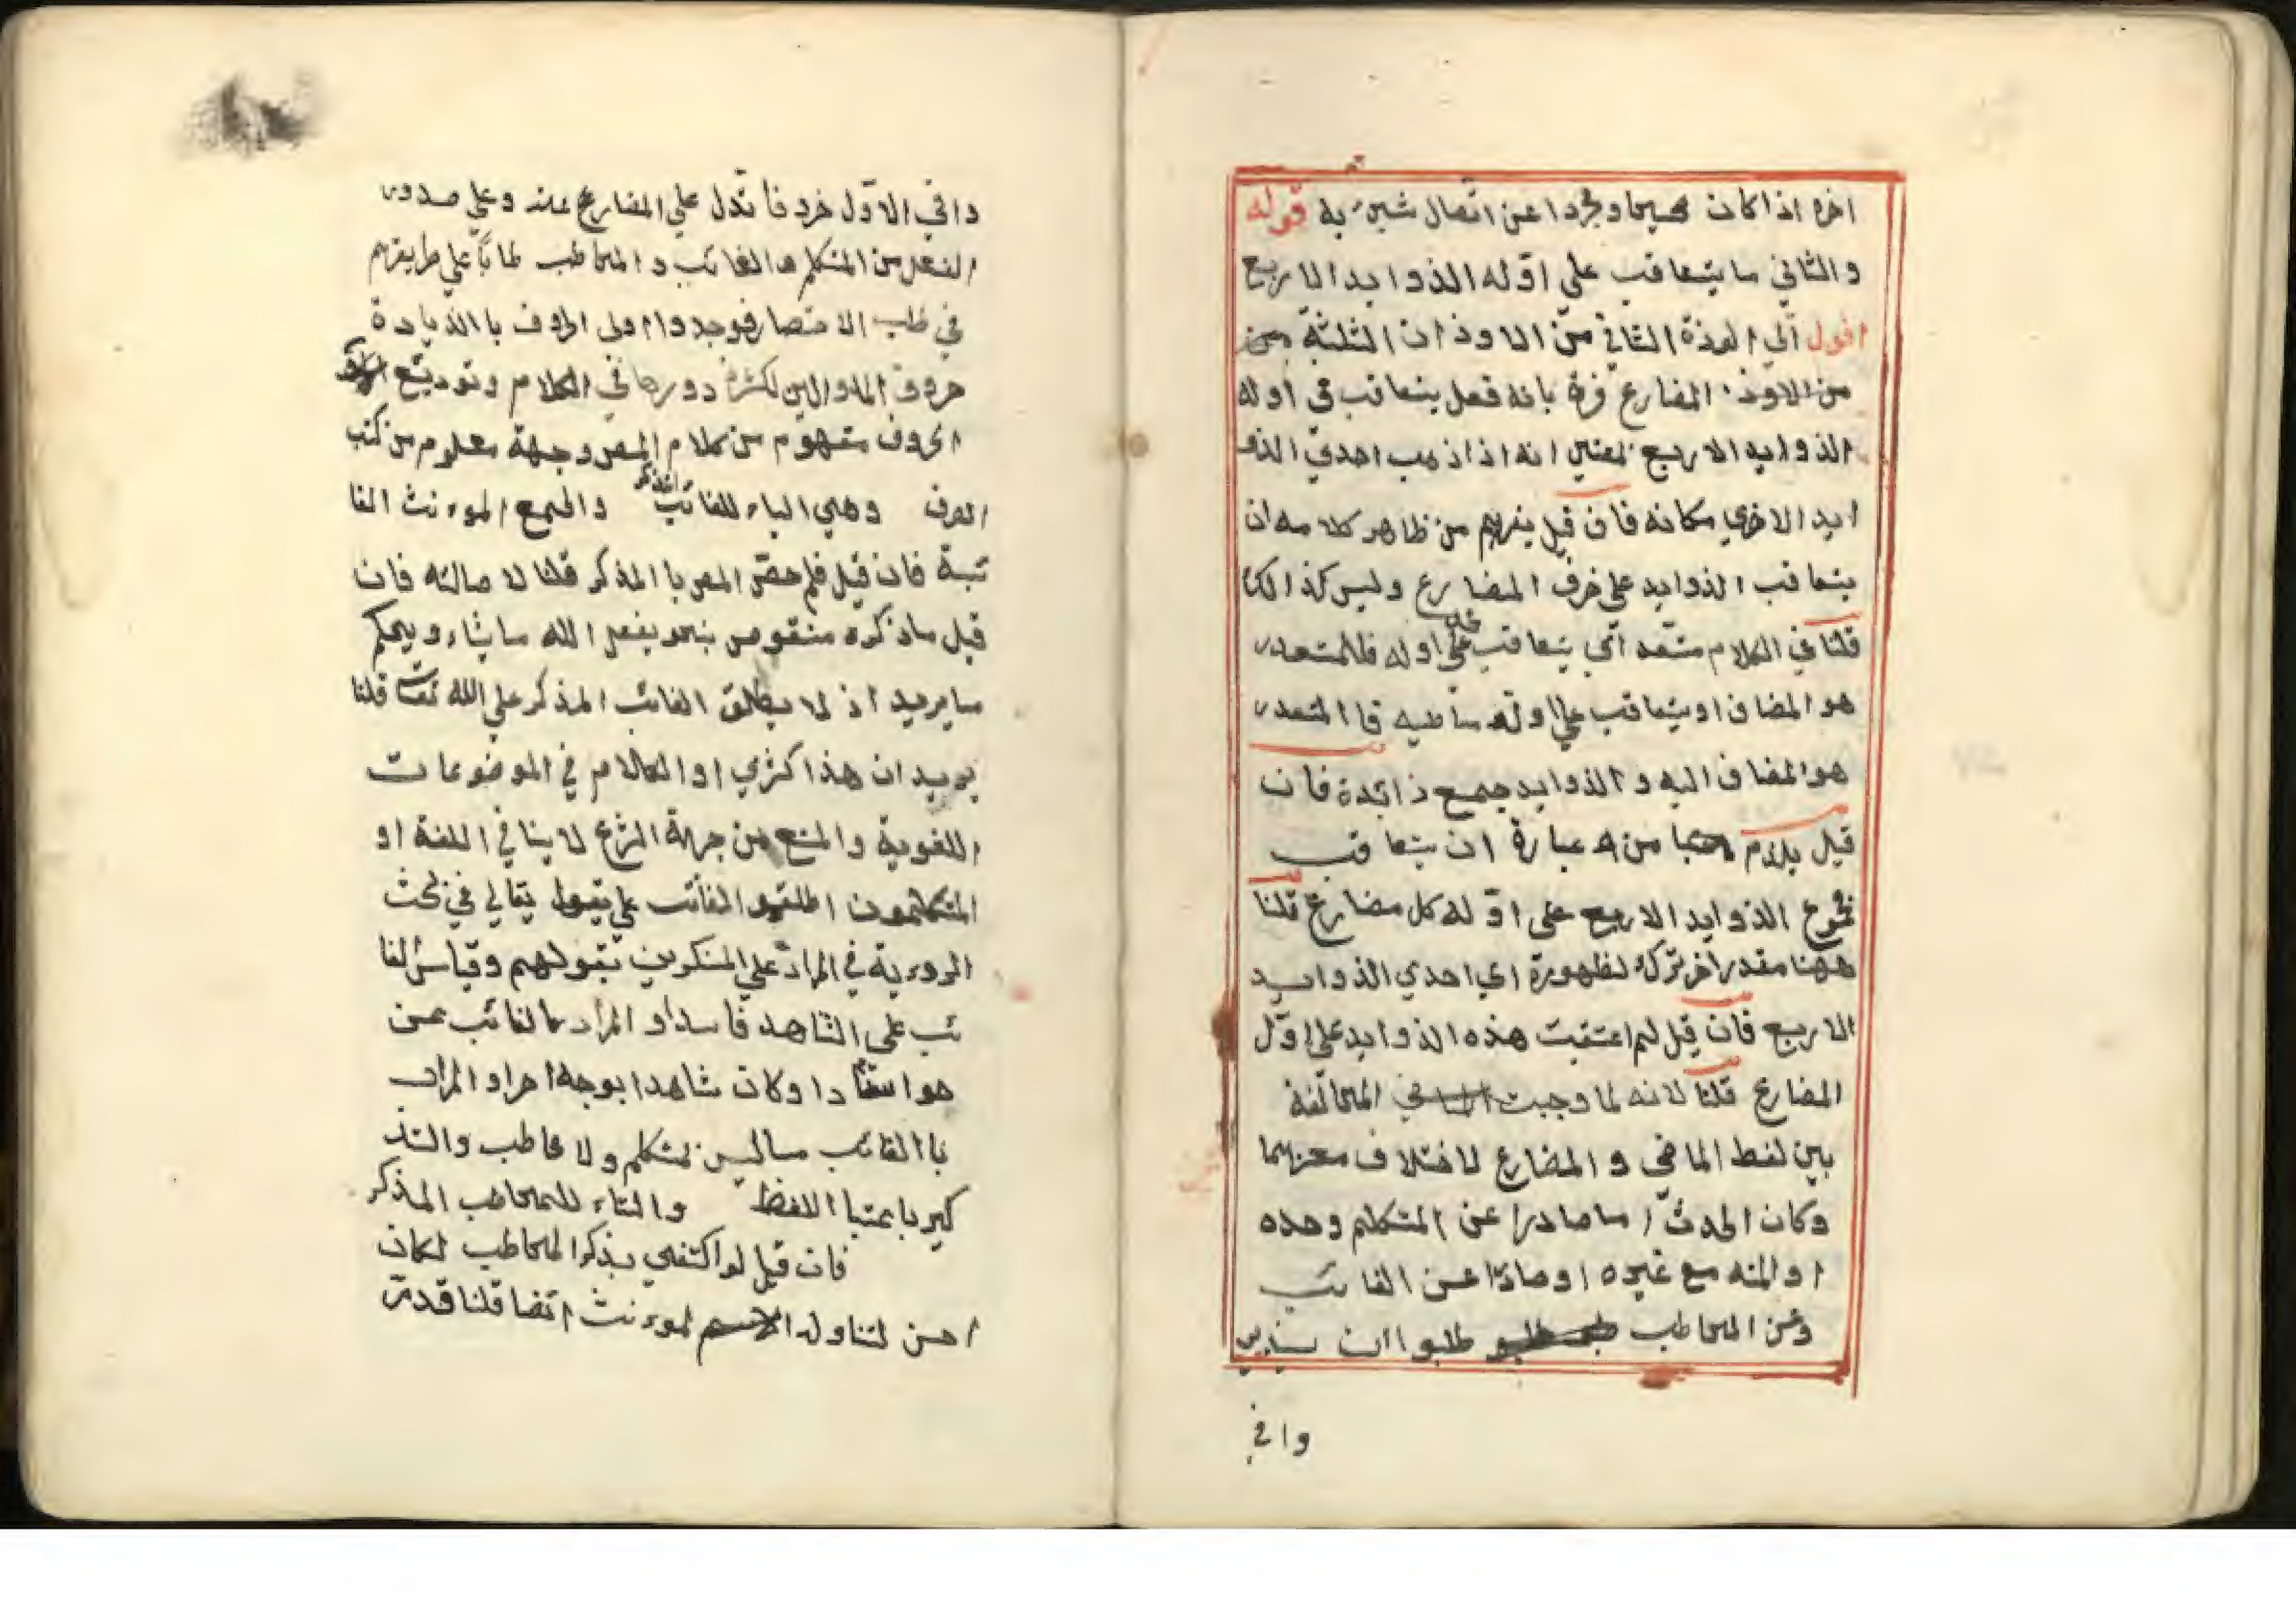 اخره اذا كان صحيحا ومجردا عن اتصال شيئ به قوله
والثاني ما يتعاقب على اوّله الذوايد الاربع
اقول اي الوذة الثاني من الاوذان الثلثة
من الاوذ المضارع فرة بانه فعل يتعاقب في اوله
الذوايد الاربع بمعني انه اذا ذهب احدي الذو
ايد الاخري مكانه فان قيل يفهم من ظاهر كلامه ان
يتعاقب الذوايد على حرف المضارع وليس كذالك
قلنا في الكلام اي يتعاقب على اوله فالمتعدر
هو المضاف او يتعاقب علي اوله ماضيه فا المتعدر
هو المضاف اليه والذوايد جمع ذائدة فان
قيل يلزم من عبارة ان يتعاقب
مجموع الذوايد الاربع على اوّله كل مضارع قلنا
ههنا مقدر اخر ترك لظهورة اي احدي الذوايد
الاربع فان قيل لم اعتقبت هذه الذوايد على اوّل
المضارع قلنا لانه لما وجبت المخالفة
بين لفط الماضي والمضارع لاختلاف معنهما
وكان الحدث اما صادرا عن المتكلم وحده
او المنه مع غيره او صادرا عن الغائب
وعن المخاطب طلبوا ان يذيد
وافي
دافي الاوّل حروفا تدل علي المضارع عنه وعلي صدور
الفعل من المتكلم والغائب والمخاطب علي طريقهم
في طلب الاختصار فوجدوا اولى الحروف با الذيادة
حروف المد والين لكثرة دورها في الكلام وتوديع
الحروف مفهوم من كلام المص وجهة معلوم من كتب
الصرف وهي الياء للغائب المذكر والجمع الموءنث الغا
ئبة فان قيل فلم خصّ المص با المذكر قلنا لاصالته فان
قيل ما ذكره منقوص بنحو يفعل الله ما يشاء ويحكم
ما يريد اذ لا يطلق الغائب المذكر علي الله تعا قلنا
يريد ان هذا كثري او الكلام في الموضوعات
اللغوية والمنع من جهة الشرع لا ينافي اللغة او
المتكلمون اطلقو الغائب علي يقول تعالي في بحث
الروءية في الراد علي المنكرين بقولهم وقياس الغا
ئب على الشاهد فاسد او المراد بالغائب عن
هو وكان شاهدا بوجه اخر او المراد
با الغائب ما ليس بمتكلم ولا مخاطب والتذ
كير باعتبا اللفظ والتاء للمخاطب المذكر
فان قيل لو اكتفي بذكر المخاطب لكان
احسن لتناوله الموءنث ايضا قلنا قدمّ